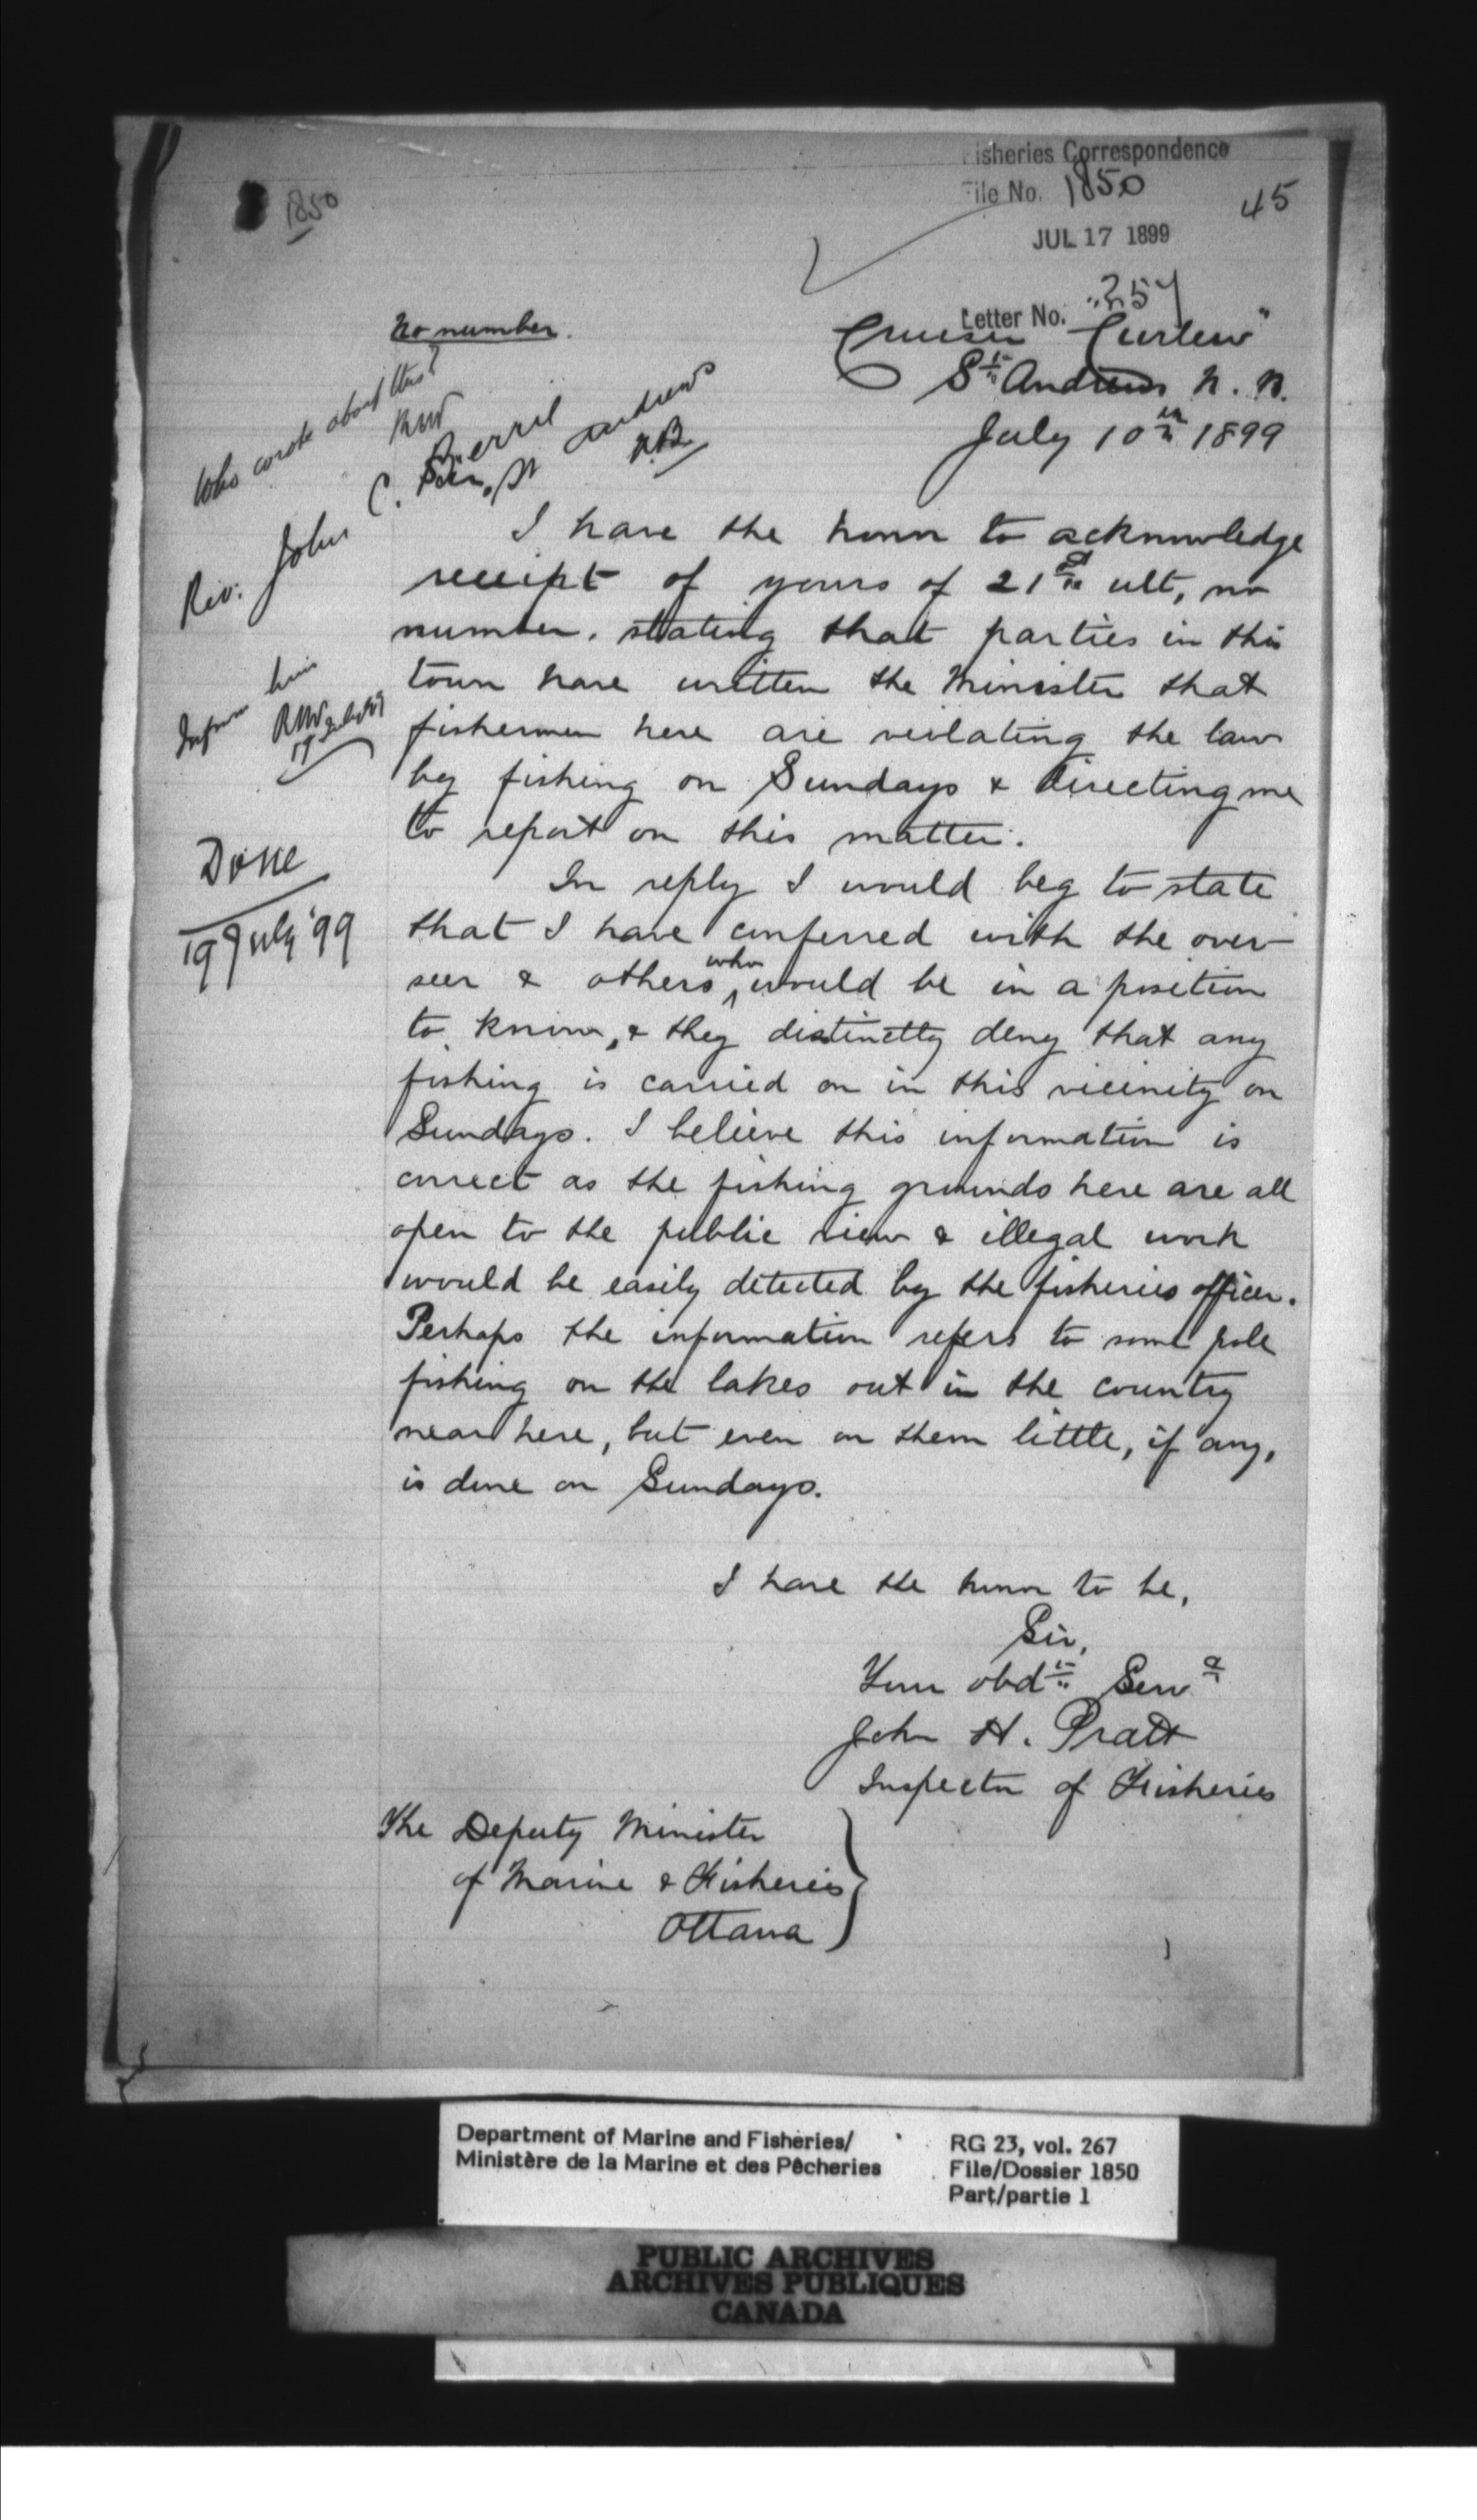 Fisheries Correspondence
File No. 1850
45
1850
JUL 17 1899
Letter No. 257
No number.
Cruiser "Curlew"
St. Andrews N. B.
July 10th 1899
Who wrote about this?
RNV
Rev. John C. Berrie St Andrews
N.B.
Sir,
I have the honor to acknowledge
receipt of yours of 21st ult, no
number, stating that parties in this
town have written the Minister that
fishermen here are violating the law
by fishing on Sundays & directing me
to report on this matter.
Inform him
RNV
17 July 99
Done
19 July '99
In reply I would beg to state
that I have conferred with the over-
seer & others who would be in a position
to know, & they distinctly deny that any
fishing is carried on in this vicinity on
Sundays. I believe this information is
correct as the fishing grounds here are all
open to the public view & illegal work
would be easily detected by the fisheries officer.
Perhaps the information refers to some pole
fishing on the lakes out in the country
near here, but even on them little, if any,
is done on Sundays.
I have the honor to be,
Sir,
Your obdt Servt
John H. Pratt
Inspector of Fisheries
The Deputy Minister
of Marine & Fisheries
Ottawa
Department of Marine and Fisheries/
Ministère de la Marine et des Pêcheries
RG 23, vol. 267
File/Dossier 1850
Part/partie 1
PUBLIC ARCHIVES
ARCHIVES PUBLIQUES
CANADA